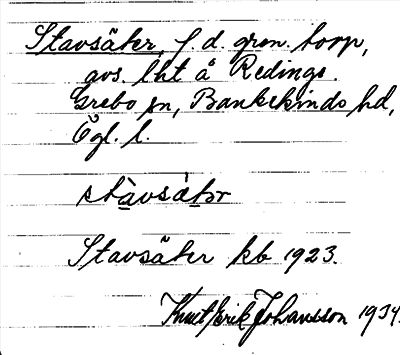 Stavsäter, f. d. gren. torp,
avs. lht å Redings.
Grebo sn, Bankekinds hd,
Ögl. l.
stàvsàtər
Stavsäter kb 1923.
Knut Erik Johansson 1934.